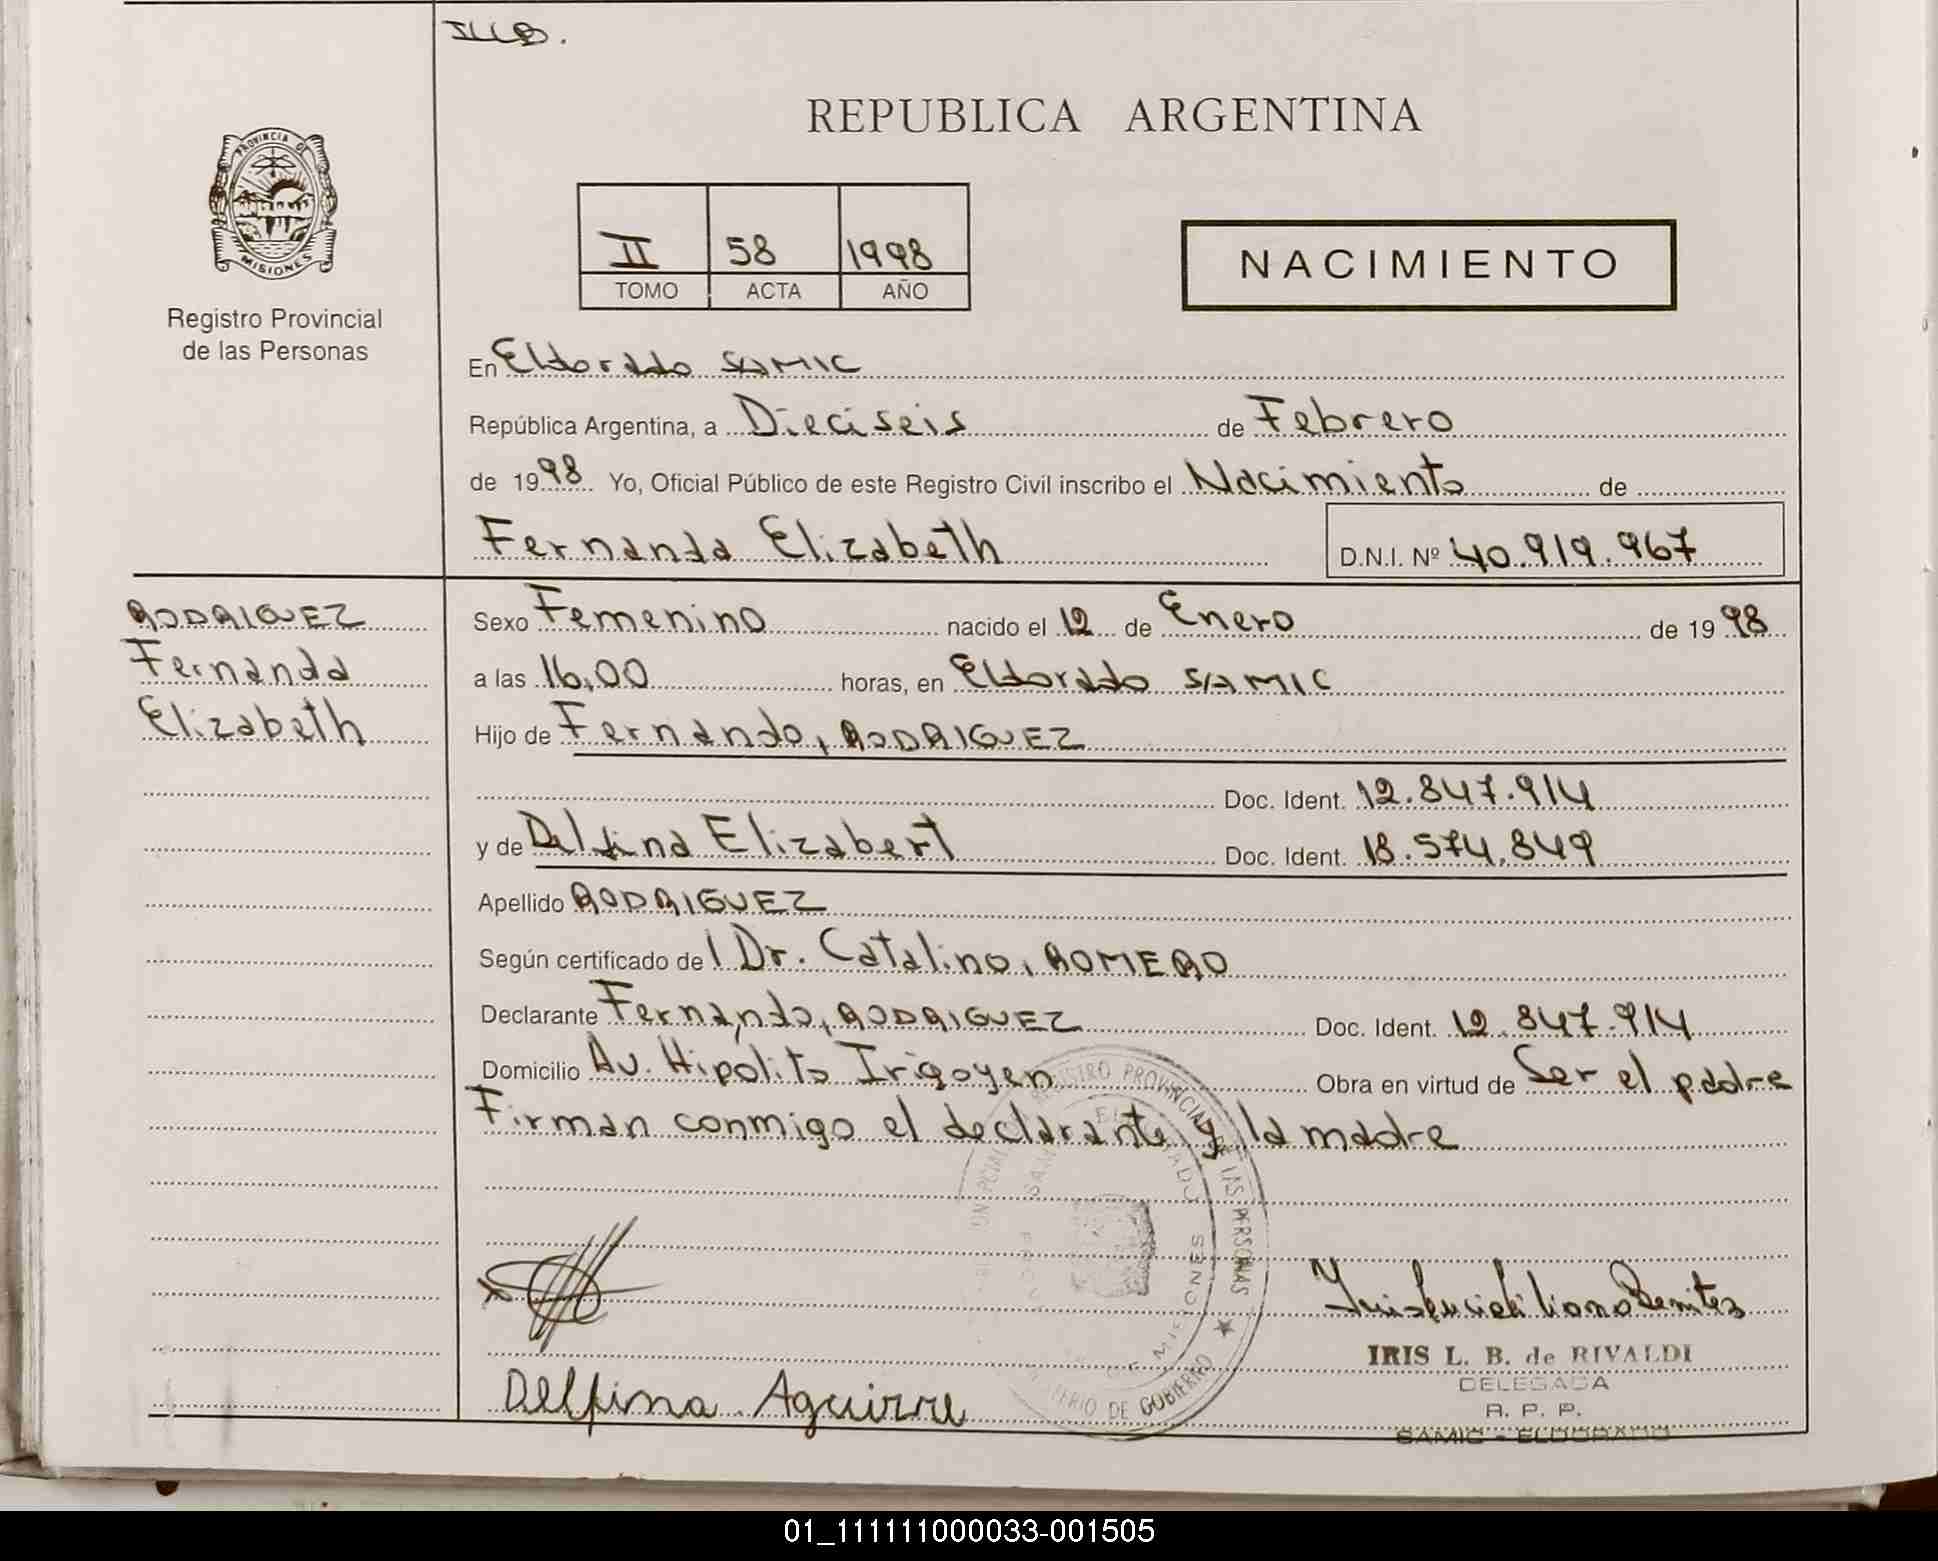 REPUBLICA ARGENTINA
PROVINCIA DE
MISIONES
Registro Provincial
de las Personas
II 58 1998
TOMO ACTA AÑO
NACIMIENTO
En Eldorado SAMIC
República Argentina, a Dieciseis de Febrero
de 1998 Yo, Oficial Público de este Registro Civil inscribo el Nacimiento de
Fernanda Elizabeth D.N.I. Nº 40.919.967
RODRIGUEZ
Fernanda
Elizabeth
Sexo Femenino nacido el 12 de Enero de 1998
a las 16,00 horas, en Eldorado SAMIC
Hijo de Fernando, RODRIGUEZ
Doc. Ident. 12.847.914
y de Delfina Elizabert Doc. Ident. 18.574.849
Apellido RODRIGUEZ
Según certificado del Dr. Catalino, ROMERO
Declarante Fernando, RODRIGUEZ Doc. Ident. 12.847.914
Domicilio Av. Hipólito Irigoyen Obra en virtud de Ser el padre
Firman conmigo el declarante y la madre
REGISTRO PROVINCIAL DE LAS PERSONAS
MISIONES
DE GOBIERNO
Delfina Aguirre
IRIS L. B. de RIVALDI
DELEGADA
R. P. P.
SAMIC - ELDORADO
01_111111000033-001505